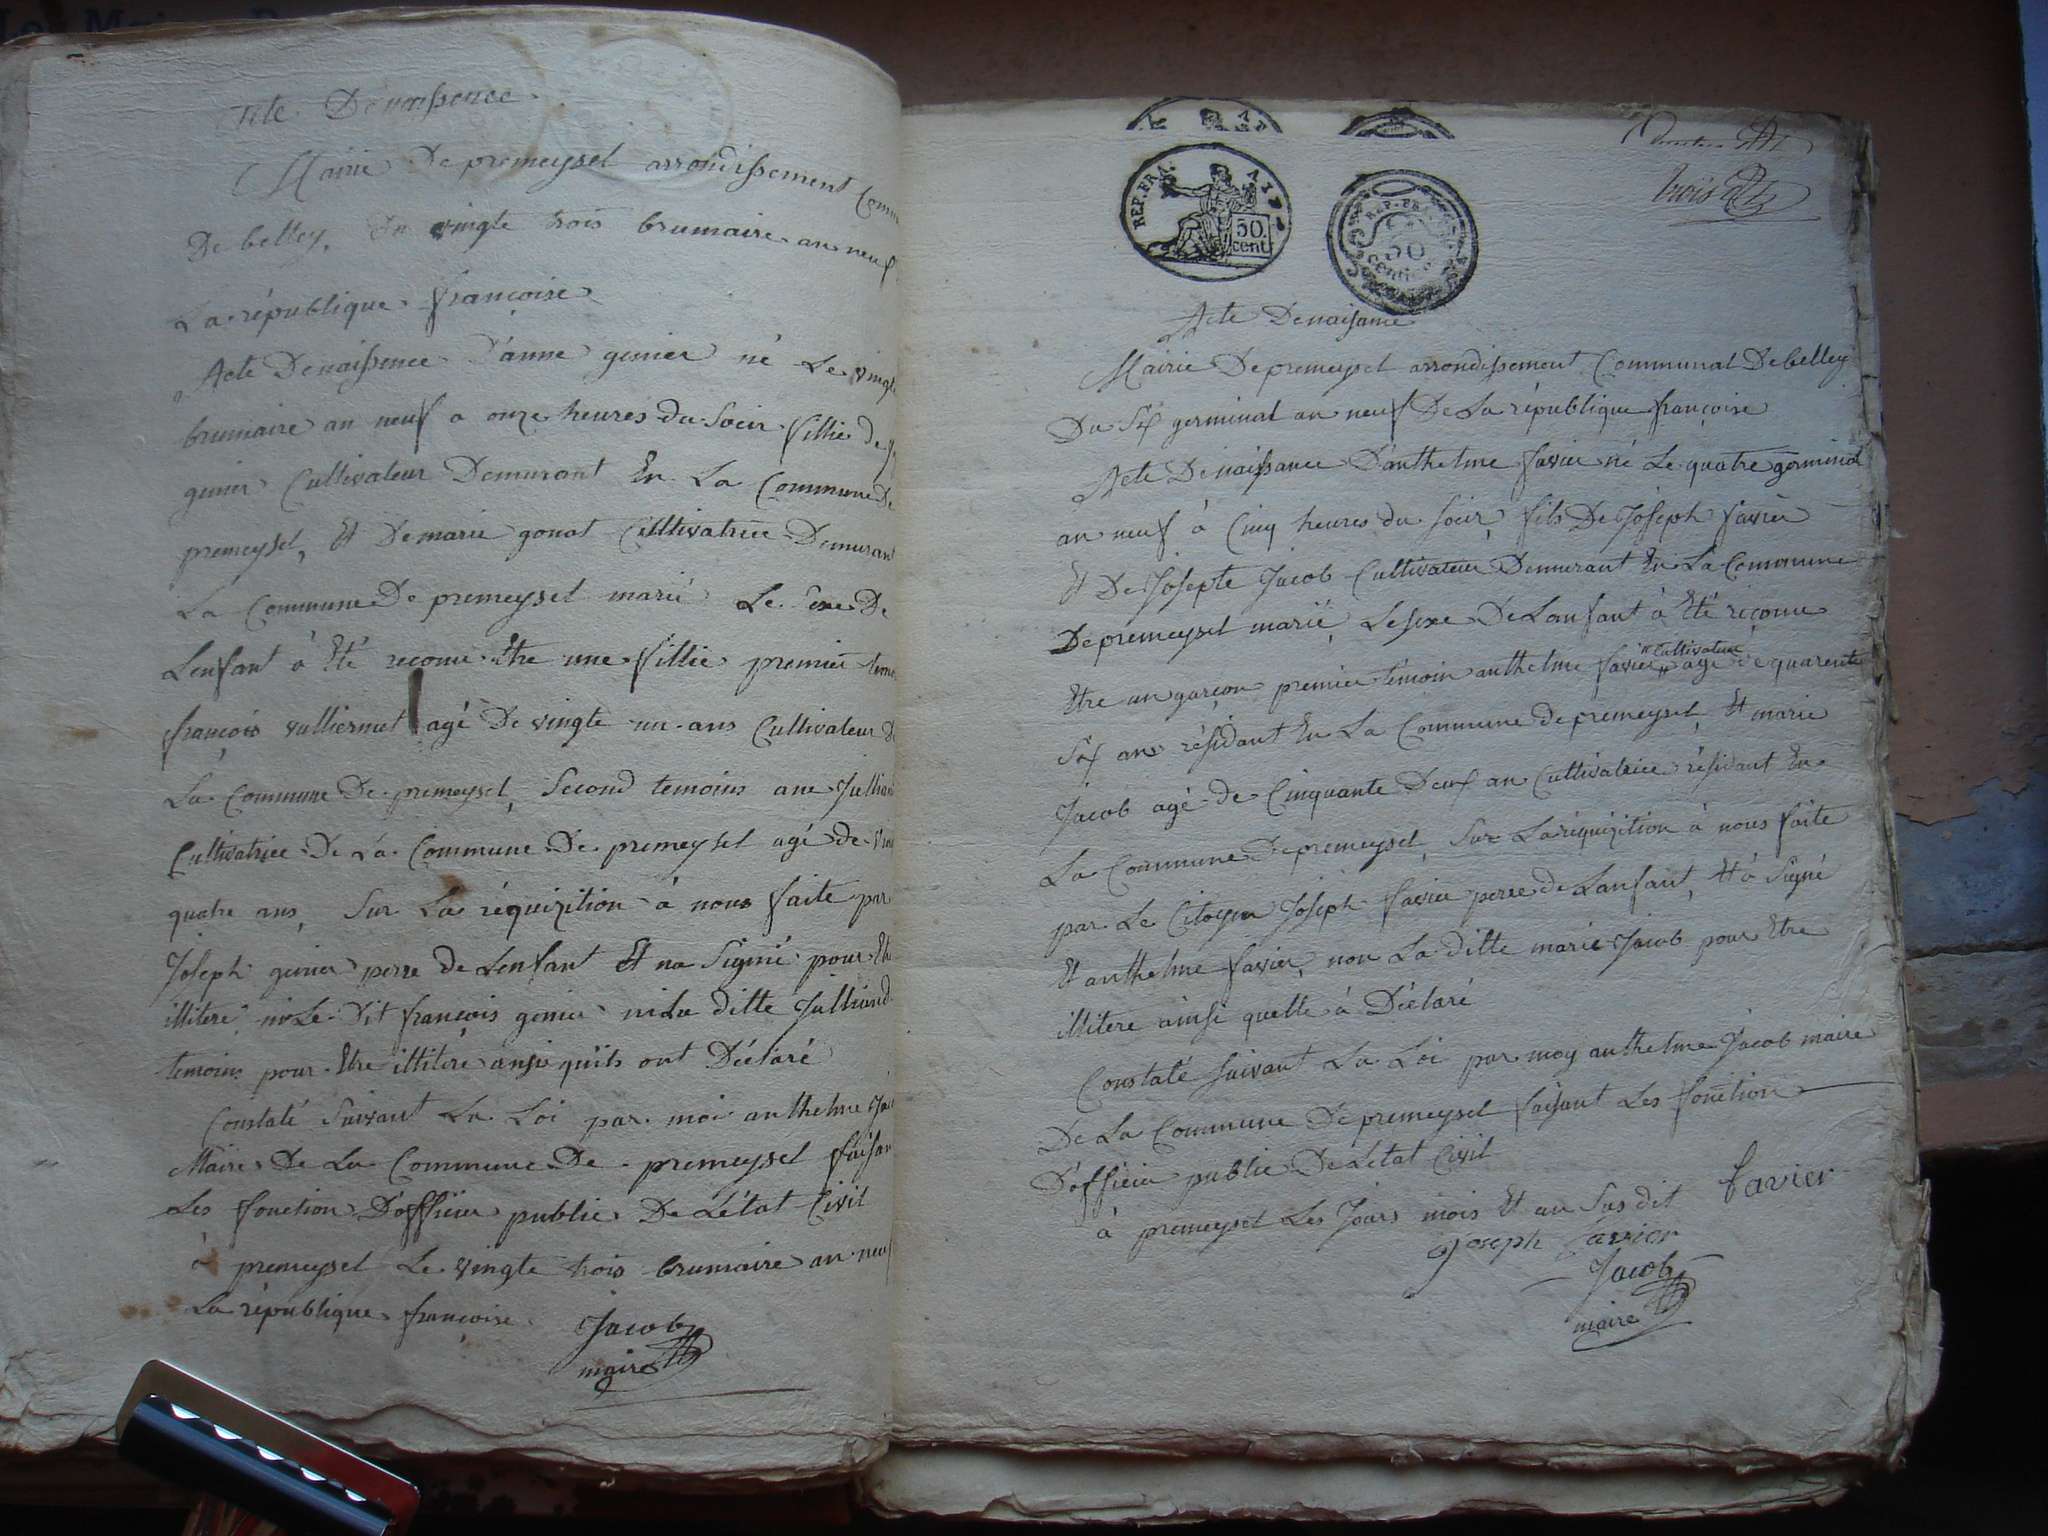 Acte Denaissence
Mairie De premeysel arrondissement Comm
De belley, du vingte trois brumaire an neuf
La république françoise
Acte Denaissence D'anne genier né Le vingte
brumaire an neuf a onze heures du Soeir fillie de
genier Cultivateur Demurant En La Commune De
premeysel, Et De marie gonat Cultivatrice Demurant
La Commune De premeysel marié Le Sexe De
Lenfant à Eté reconu Etre une fillie premier temo
françois vulliermet agé De vingte un ans Cultivateur De
La Commune De premeysel, Second temoins ane Julliand
Cultivatrice De La Commune De premeysel agé de vin
quatre ans, Sur La réquizition à nous faite par
Joseph genier perre de Lenfant Et na Signié pour Et
illitere ni Le Dit françois genier ni La ditte Julliand
temoins pour Etre illitere ansi quils ont Déclaré
Constaté Suivant La Loi par moi anthelme Jac
Maire De La Commune De premeysel faisan
Les fonction D'officier public De L'état Civil
à premeysel Le vingte trois brumaire an neuf
La république françoise
Jacob
maire
REP. FRA.
50.
cent
REP. FRA.
50
centim
trois
Acte Denaisance
Mairie De premeysel arrondissement Communal De belley
Du Six germinal an neuf De La république françoise
Acte De naissance D'anthelme favier né Le quatre germinal
an neuf à Cinq heures du Soeir, fils De Joseph favier
Et De Josepte Jacob Cultivateur Demurant En La Commune
De premeysel marié, Le Sexe De Lanfant à Eté reconu
Etre un garçon premier temoin anthelme favier "Cultivateur" agé de quarente
Six ans résidant En La Commune de premeysel, Et marie
Jacob agé de Cinquante Deux an Cultivatrice résidant En
La Commune De premeysel, Sur La réquizition à nous faite
par Le Citoyen Joseph favier perre de Lanfant, Et à Signé
Et anthelme favier, non La ditte marie Jacob pour Etre
illitere ainsi quelle à Déclaré
Constaté Suivant La Loi par moy anthelme Jacob maire
De La Commune De premeysel faisant Les fonction
D'officier public De Létat Civil
à premeysel Les Jours mois Et an Susdit
favier
Joseph favier
Jacob
maire